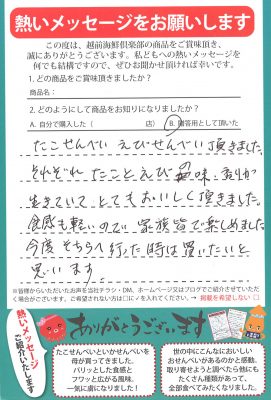 熱いメッセージをお願いします
この度は、越前海鮮倶楽部の商品をご賞味頂き、
誠にありがとうございます。私どもへの熱いメッセージを
何でも結構ですので、ぜひお聞かせ頂ければ幸いです。
1. どの商品をご賞味頂きましたか？
商品名：
2. どのようにして商品をお知りになりましたか？
A. 自分で購入した（　　　　店） B. 贈答用として頂いた
たこせんべい えびせんべい 頂きました。
それぞれ たことえびの風味、香りが
生きていて とてもおいしく頂きました。
食感も軽いので 家族皆で楽しめました。
今度 そちらへ行った時は買いたいと
思います。
※皆様からいただいたお声を当社チラシ・DM、ホームページ又はブログでご紹介させていただ
く場合がございます。ご希望されない方は□に✓を入れてください。→ 掲載を希望しない □
熱いメッセージ
ご紹介いたします！
ありがとうございます
たこせんべいといかせんべいを
母が買ってきました。
パリッとした食感と
フワッと広がる風味。
一気に虜になりました！
世の中にこんなにおいしい
おせんべいがあるのかと感動。
取り寄せようと調べたら他にも
たくさん種類があって、
全部食べてみたくなりました。